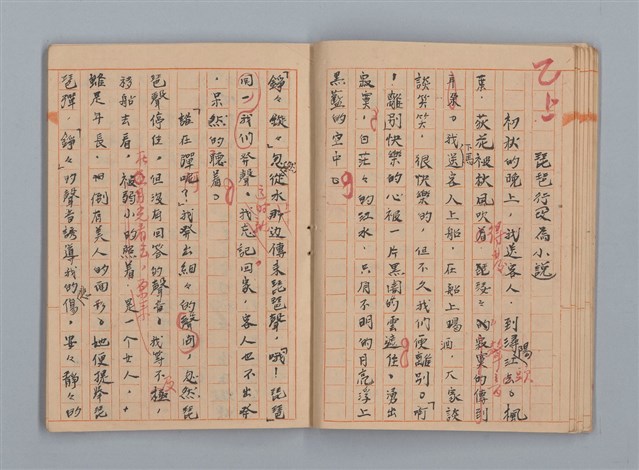 乙上
琵琶行改為小說
初秋的晚上,我送客人,到潯陽江去。楓
葉,荻花被秋風吹着,瑟瑟々的寂寞的傳到
耳朵。我下馬送客人上船,在船上喝酒,大家談
談笑笑,很快樂的,但不久我们便離别。啊
!離别快樂的心被一片黑闇的雲遮住。湧出
寂寞,白茫々的江水,只有不明的月亮浮上
黑藍的空中。
「錚々鏦々」忽然從水那边傳來琵琶聲,「哦!琵琶
」我们齊聲。我忘記回家,客人也不出發
,呆然的聽着。
「誰在彈呢?」我發出細々的聲问,忽然琵
琶聲停住。但没有回答的聲音。我等不及,
移船去看,被弱小的照着,是一个女人。
在月光看去,原來
雖是年長,但倒有美人的面形。她便提起琵
琶彈,錚々的聲音誘導我的悲傷,安々靜々的